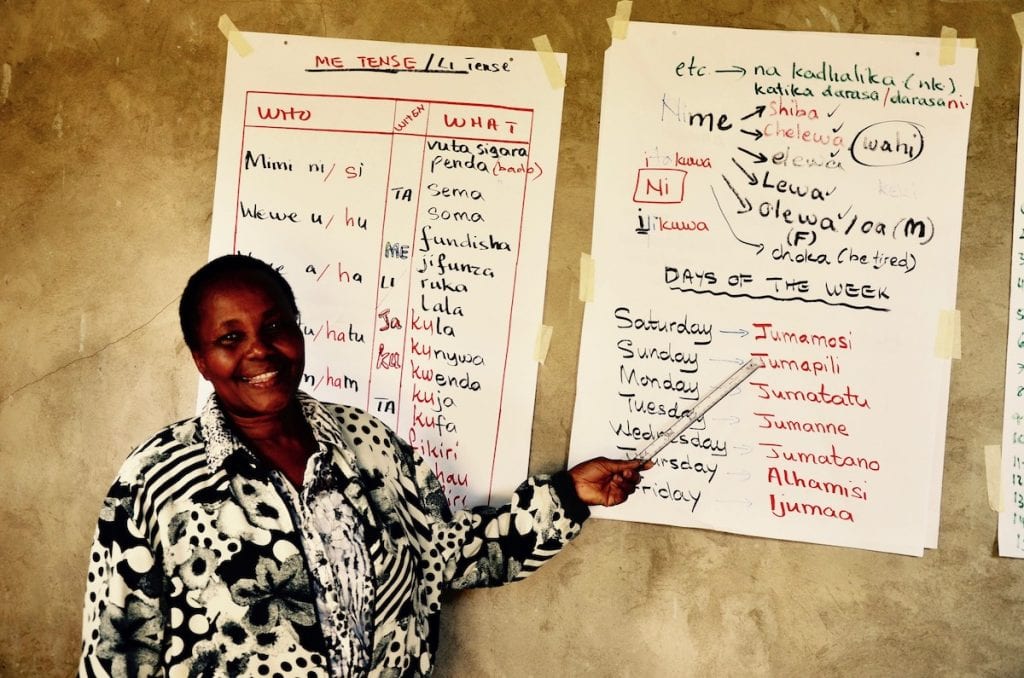 ME TENSE / LI Tense
WHO WHEN WHAT
vuta sigara
Mimi ni/si penda (bado)
TA sema
Wewe u/hu soma
ME fundisha
jifunza
a/ha LI ruka
lala
u/hatu Ja kula
ku kunywa
m/ham kwenda
TA kuja
kufa
fikiri
etc. → na kadhalika (nk).
katika darasa/darasani.
Nime shiba ✓
chelewa ✓ wahi
itakuwa elewa ✓
Ni Lewa ✓
ilikuwa olewa ✓/oa (M)
(F)
choka (be tired)
DAYS OF THE WEEK
Saturday → Jumamosi
Sunday → Jumapili
Monday Jumatatu
Tuesday Jumanne
Wednesday → Jumatano
Thursday → Alhamisi
Friday → Ijumaa